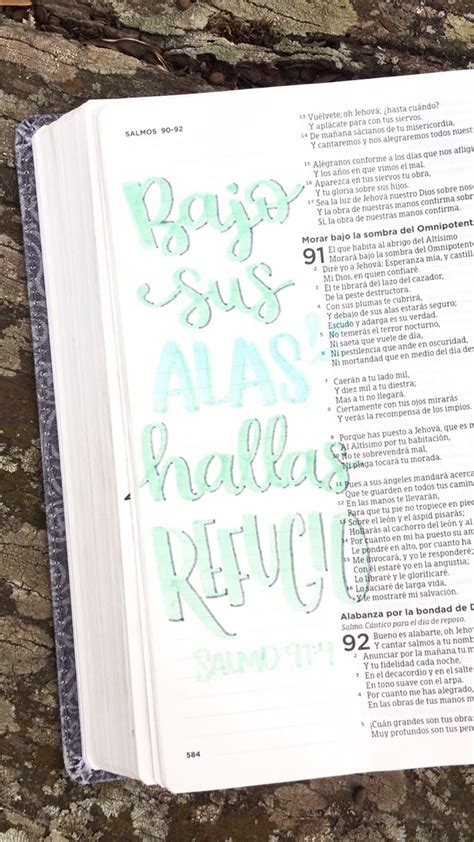 SALMOS 90-92
Bajo
sus
ALAS
hallas
REFUGIO
SALMO 91:4
584
13 Vuélvete, oh Jehová; ¿hasta cuándo?
Y aplácate para con tus siervos.
14 De mañana sácianos de tu misericordia,
Y cantaremos y nos alegraremos todos nuestro
15 Alégranos conforme a los días que nos aflig
Y los años en que vimos el mal.
16 Aparezca en tus siervos tu obra,
Y tu gloria sobre sus hijos.
17 Sea la luz de Jehová nuestro Dios sobre nos
Y la obra de nuestras manos confirma sobre
Sí, la obra de nuestras manos confirma
Morar bajo la sombra del Omnipotent
91 El que habita al abrigo del Altísimo
Morará bajo la sombra del Omnipotente
2 Diré yo a Jehová: Esperanza mía, y castill
Mi Dios, en quien confiaré.
3 Él te librará del lazo del cazador,
De la peste destructora.
4 Con sus plumas te cubrirá,
Y debajo de sus alas estarás seguro;
Escudo y adarga es su verdad.
5 No temerás el terror nocturno,
Ni saeta que vuele de día,
6 Ni pestilencia que ande en oscuridad,
Ni mortandad que en medio del día des
7 Caerán a tu lado mil,
Y diez mil a tu diestra;
Mas a ti no llegará.
8 Ciertamente con tus ojos mirarás
Y verás la recompensa de los impíos.
9 Porque has puesto a Jehová, que es
Al Altísimo por tu habitación,
10 No te sobrevendrá mal,
Ni plaga tocará tu morada.
11 Pues a sus ángeles mandará acerca
Que te guarden en todos tus camin
12 En las manos te llevarán,
Para que tu pie no tropiece en
13 Sobre el león y el áspid pisarás;
Hollarás al cachorro del león y al
14 Por cuanto en mí ha puesto su am
Le pondré en alto, por cuanto ha
15 Me invocará, y yo le responderé;
Con él estaré yo en la angustia;
Lo libraré y le glorificaré.
16 Lo saciaré de larga vida,
Y le mostraré mi salvación.
Alabanza por la bondad de D
Salmo. Cántico para el día de reposo.
92 Bueno es alabarte, oh Jehová
Y cantar salmos a tu nomb
2 Anunciar por la mañana tu m
Y tu fidelidad cada noche,
3 En el decacordio y en el salte
En tono suave con el arpa.
4 Por cuanto me has alegrado,
En las obras de tus manos m
5 ¡Cuán grandes son tus obra
Muy profundos son tus pen